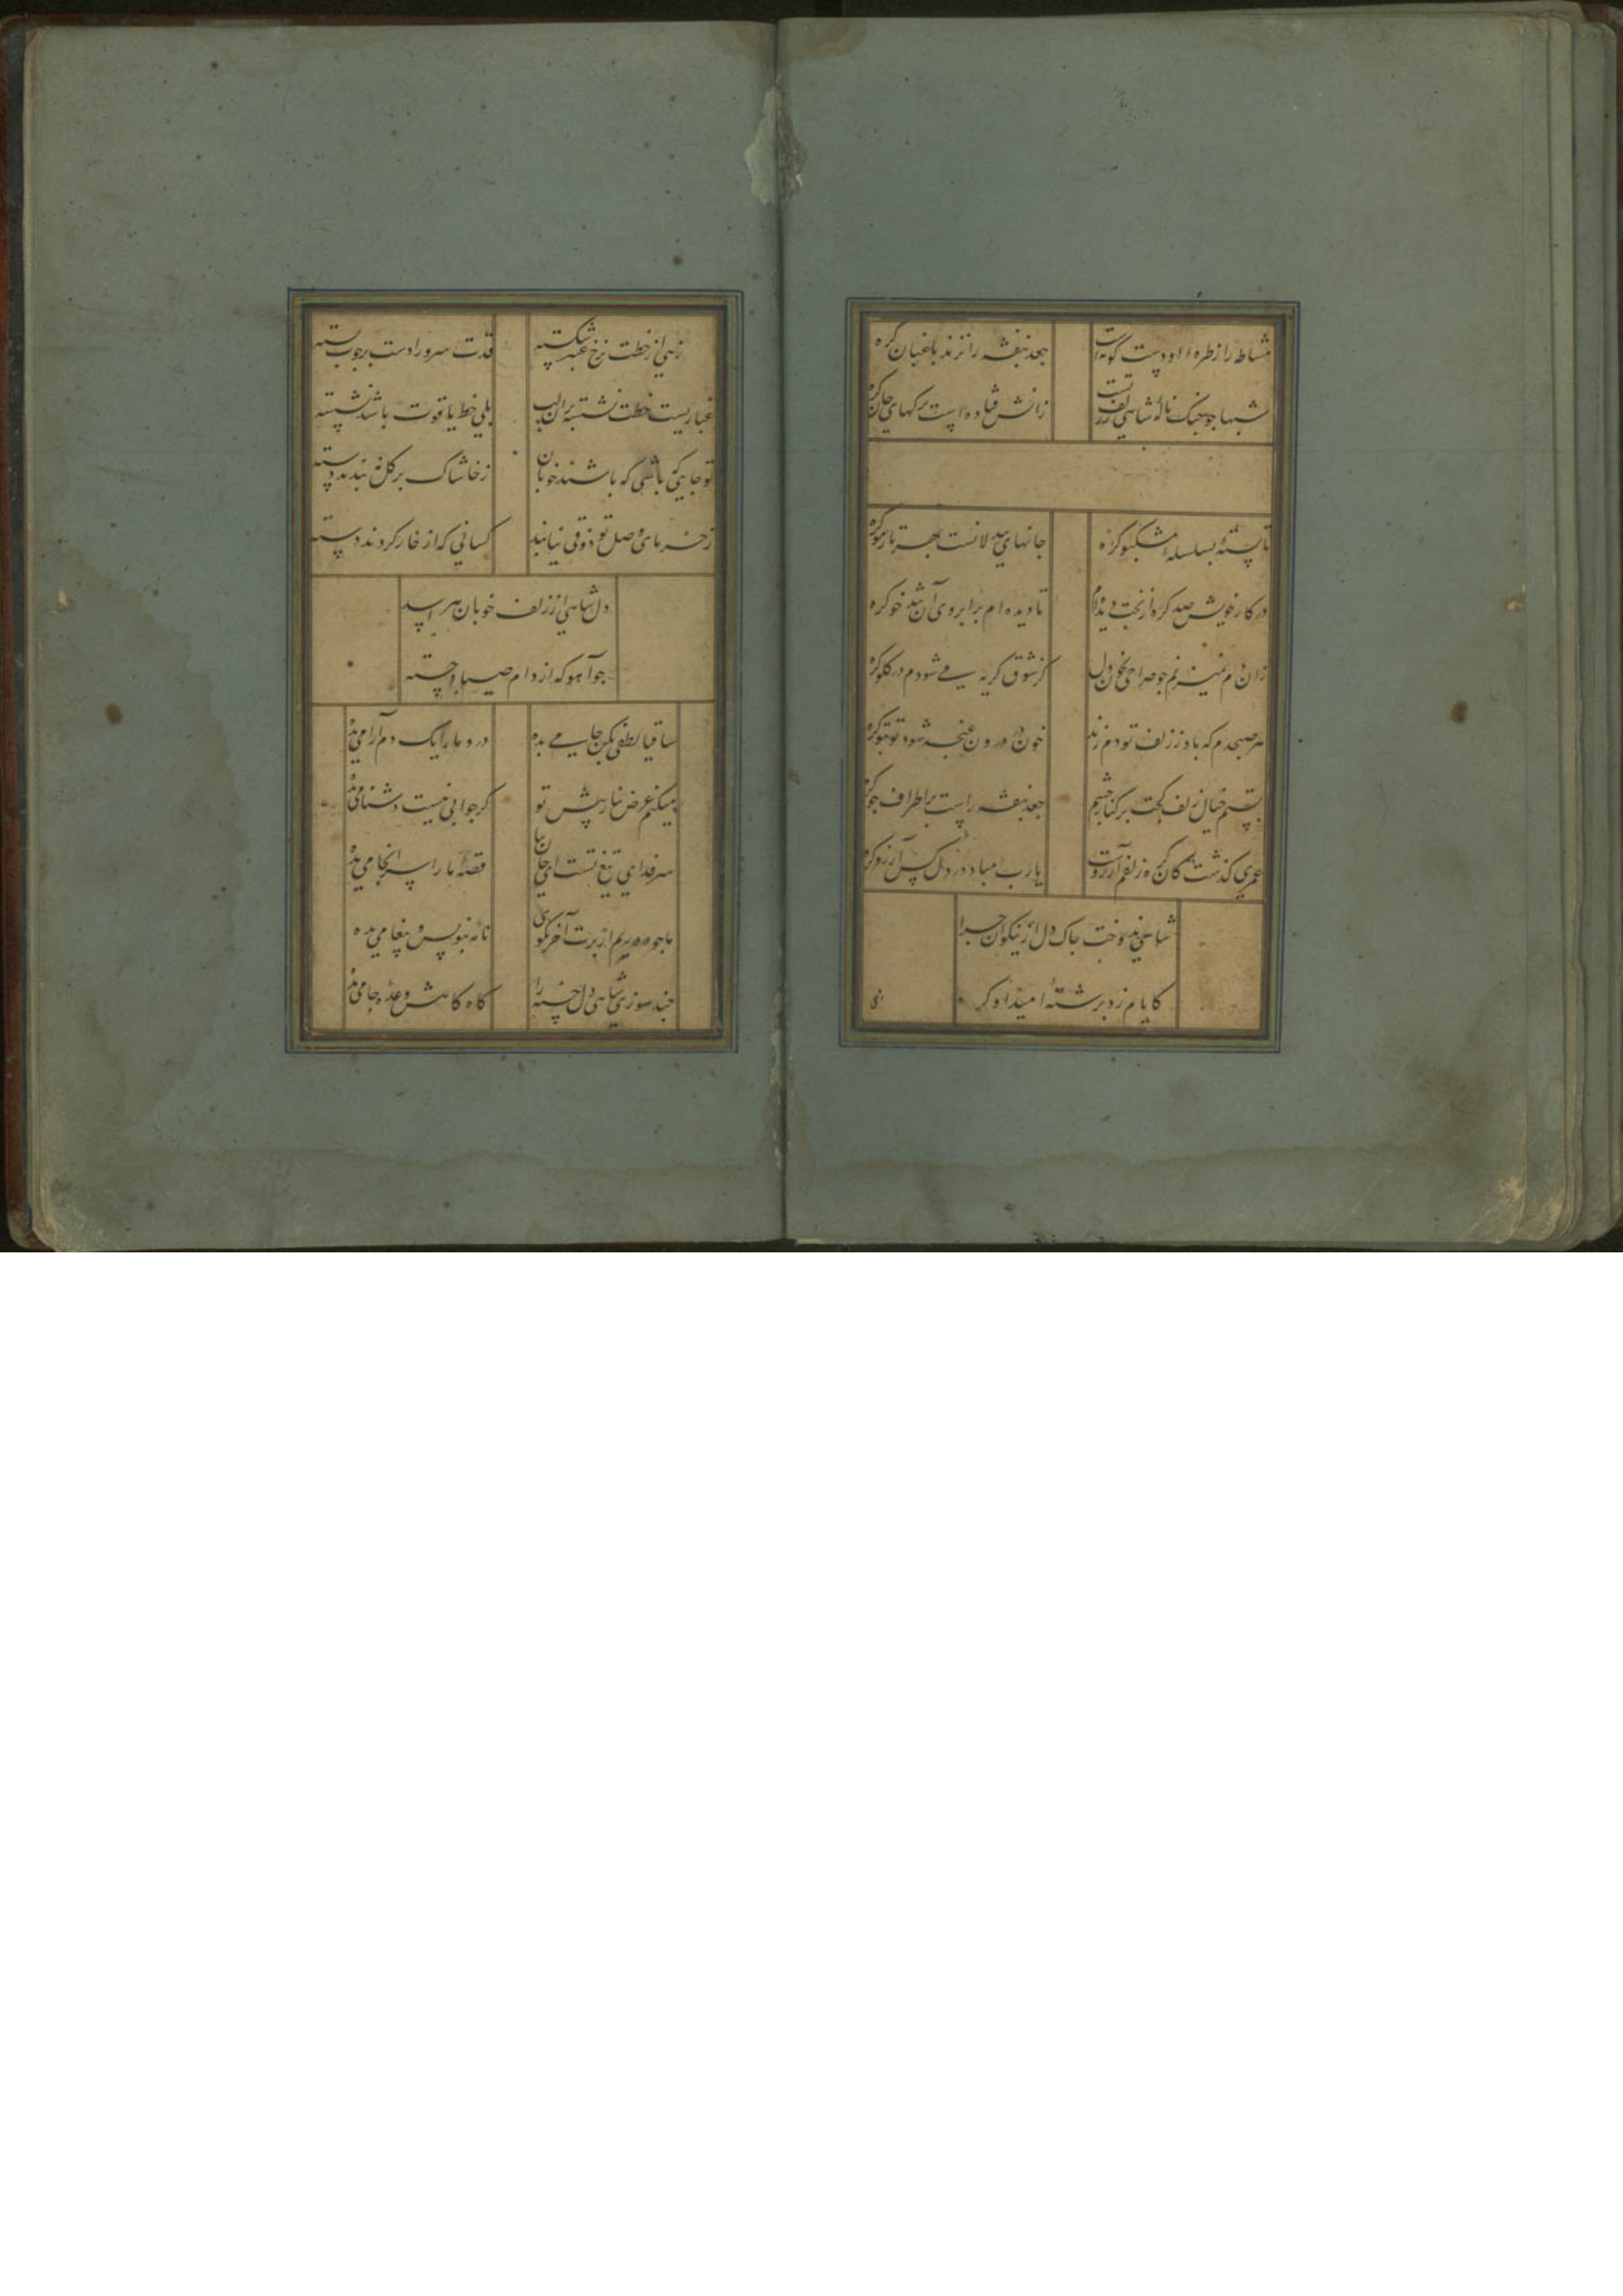 مشاطه را ز طره او دست کوته است
بجعد بنفشه را نزند باغبان گره
شبها جو جنک نالهٔ شاهی ز زلف تست
زانش فتاده است برگهای جان گره
تا بستهٔ بسلسلهٔ مشکبو گره
جانهای بیدلانست بهر تار مو گره
در کار خویش صد گره از بخت دیده‌ام
تا دیده‌ام بر ابروی آن تندخو گره
زان دم نمیزنم جو صراحی ز خون دل
کز شوق گریه می شودم در گلو گره
هر صبحدم که باد ز زلف تو دم زند
خون در درون غنجه شود تو بتو گره
بستم خیال زلف کجت بر کنار جشم
جعد بنفشه راست بر اطراف جو گره
عمری گذشت کان گره زلفم آرزوست
یا رب مباد در دل کس آرزو گره
شاهی ندوخت جاک دل از نیکوان جرا
کایام زد بر شتهٔ امید او گر
زهی از خطت نرخ عنبر شکسته
قدت سرو را دست بر جوب بسته
غباریست خطت نشسته بران لب
بلی خط یاقوت باشد نشسته
تو جایی که باشی که باشند خوبان
ز خاشاک بر گل نه بندند دسته
ز خرمای وصل تو ذوقی نیابند
کسانی که از خار گردند دسته
دل شاهی از زلف خوبان هراسد
جو آهو که از دام صیاد جسته
ساقیا لطفی بکن جامی بده
درد ما را یک دم آرامی بده
میکنم عرض نیاز پیش تو
گر جوابی نیست دشنامی بده
سر فدای تیغ تست ای جان بیا
قصهٔ ما را سرانجامی بده
ما جو دوریم از برت آخر بکوی
نامه بنویس و پیغامی بده
جند سوزی شاهی دل خسته را
گاه گاهش وعدهٔ جامی بده